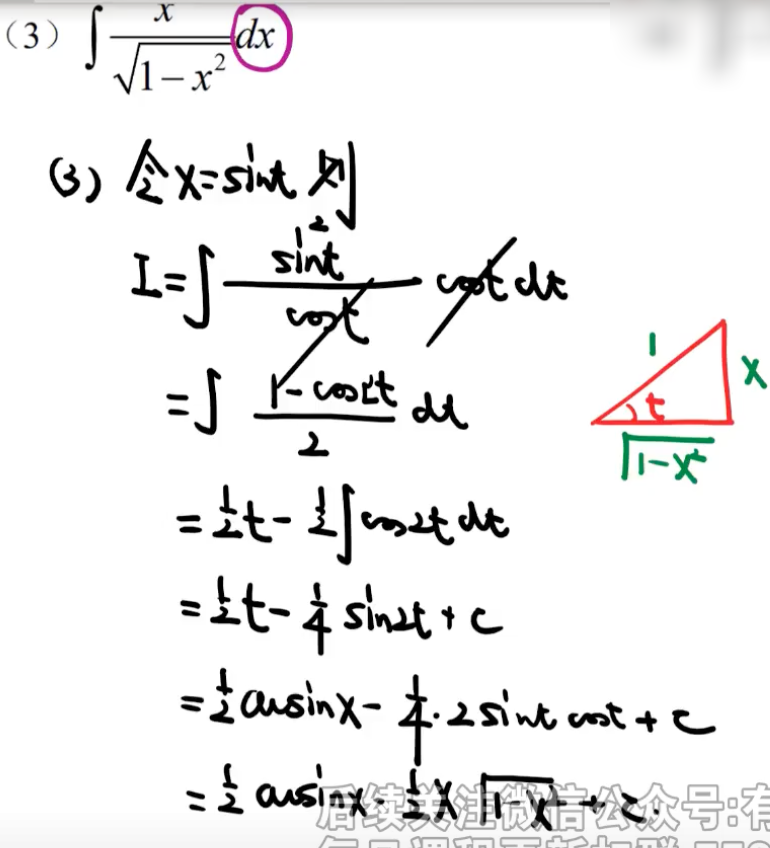 (3) ∫ x/√(1−x²) dx
(3) 令x=sint 则
I=∫ sin²t/cost cost dt
=∫ (1-cos2t)/2 dt
1
x
t
√(1-x²)
=1/2 t - 1/2 ∫cos2t dt
=1/2 t - 1/4 sin2t + C
=1/2 arcsinx - 1/4 · 2sint cost + C
=1/2 arcsinx - 1/2 x √(1-x²) + C.
后续关注微信公众号:有